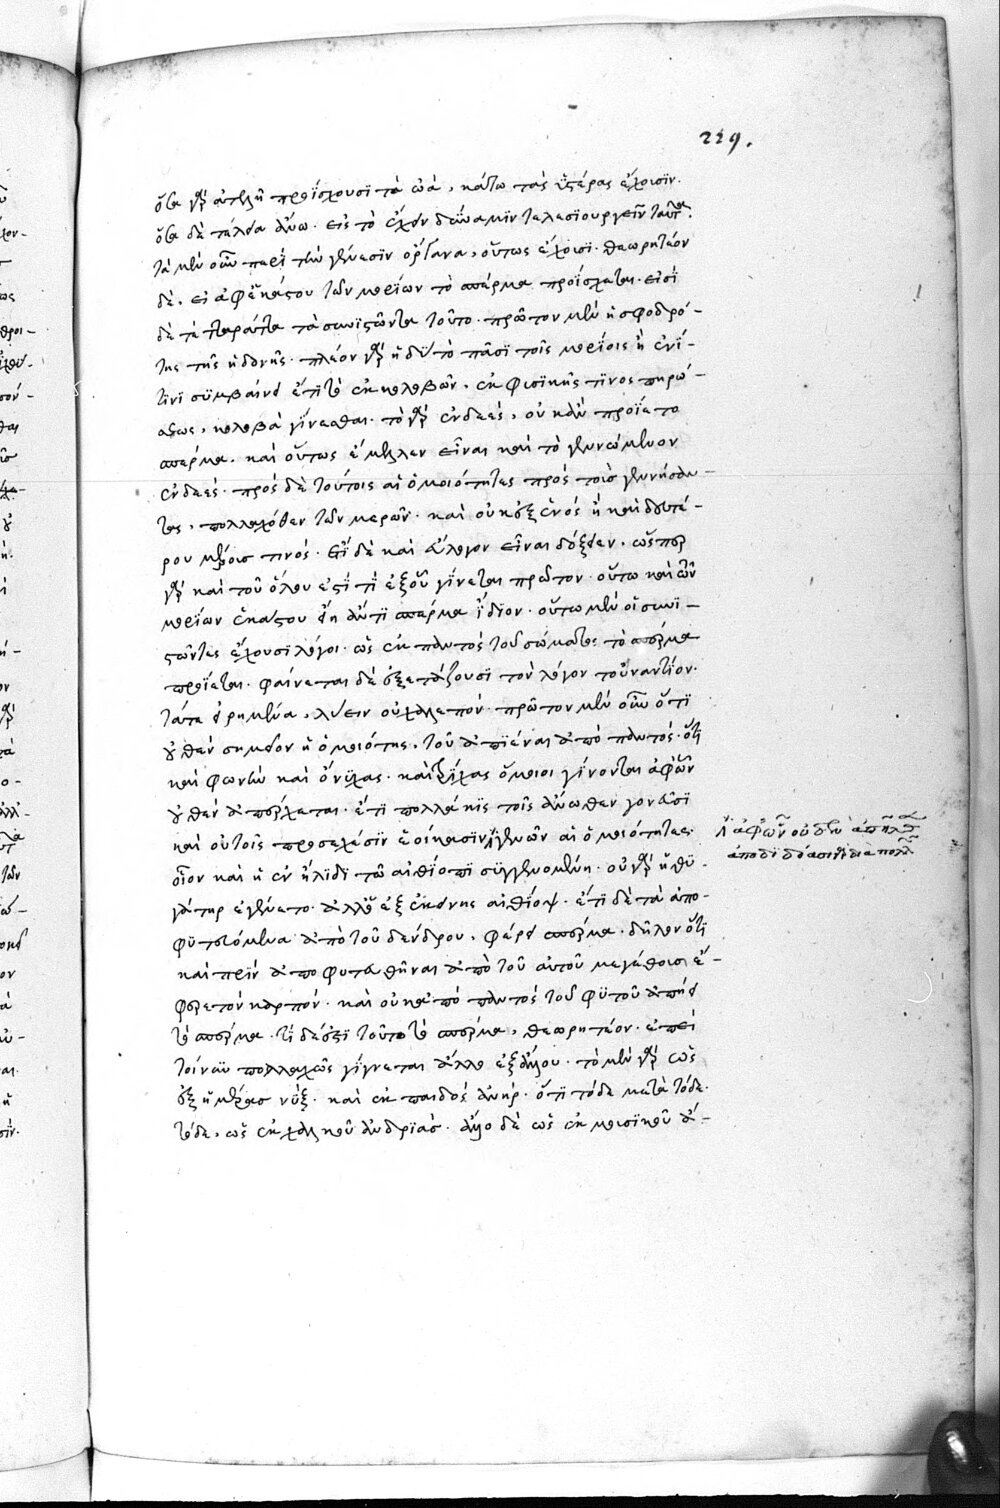 229.
ὅσα γὰρ ἀτελῆ προΐσχουσι τὰ ὠὰ, κάτω τὰς ὑστέρας ἔχουσιν.
ὅσα δὲ τέλεα ἄνω. εἰς τὸ ἔχειν δύναμιν τελεσιουργεῖν ταῦτα.
τὰ μὲν οὖν περὶ τὴν γένεσιν ὄργανα, οὕτως ἔχουσι. θεωρητέον
δὲ, εἰ ἀφ' ἑκάστου τῶν μορίων τὸ σπέρμα προΐσχεται. εἰσὶ
δὲ τέτταρα τὰ συνιστῶντα τοῦτο. πρῶτον μὲν ἡ σφοδρό-
της τῆς ἡδονῆς. πλέον γὰρ ἡδὺ τὸ πᾶσι τοῖς μορίοις ἢ ἑνί-
τινι συμβαίνει ἔτι τὸ ἐκ κολοβῶν, ἐκ φυσικῆς τινος πηρώ-
σεως, κολοβὰ γίνεσθαι. τὸ γὰρ ἐνδεὲς, οὐκ ἂν προΐετο
σπέρμα. καὶ οὕτως ἔμελλεν εἶναι καὶ τὸ γεννώμενον
ἐνδεές. πρὸς δὲ τούτοις αἱ ὁμοιότητες πρὸς τοὺς γεννήσαν-
τας, πολλαχόθεν τῶν μερῶν. καὶ οὐκ ἐξ ἑνὸς ἢ καὶ δευτέ-
ρου μέρους τινός. εἰ δὲ καὶ εὔλογον εἶναι δόξειεν, ὥσπερ
γὰρ καὶ τοῦ ὅλου ἐστί τι ἐξ οὗ γίνεται πρῶτον. οὕτω καὶ τῶν
μορίων ἑκάστου εἴη ἄν τι σπέρμα ἴδιον. οὕτω μὲν οἱ συνι-
στῶντες ἔχουσι λόγοι. ὡς ἐκ παντὸς τοῦ σώματος τὸ σπέρμα
προΐεται. φαίνεται δὲ ἐξετάζουσι τὸν λόγον τοὐναντίον.
τά τε εἰρημένα, λύειν οὐ χαλεπόν. πρῶτον μὲν οὖν ὅτι
οὐθὲν σημεῖον ἡ ὁμοιότης, τοῦ ἀπιέναι ἀπὸ παντός. ὅτι
καὶ φωνὴν καὶ ὄνυχας. καὶ τρίχας ὅμοιοι γίνονται ἀφ' ὧν
οὐθὲν ἀπέρχεται. ἔτι πολλάκις τοῖς ἄνωθεν γονεῦσι
καὶ οὐ τοῖς προσεχέσιν ἐοίκασιν, αἱ ὁμοιότητες.
οἷον καὶ ἡ ἐν ἤλιδι τῷ αἰθίοπι συγγενομένη. οὐ γὰρ ἡ θυ-
γάτηρ ἐγένετο. ἀλλ' ἐξ ἐκείνης αἰθίοψ. ἔτι δὲ τὰ ἀπο-
φυτευόμενα ἀπὸ τοῦ δένδρου, φέρει σπέρμα. δῆλον ὅτι
καὶ πρὶν ἀποφυτευθῆναι ἀπὸ τοῦ αὐτοῦ μεγέθους ἔ-
φερε τὸν καρπόν. καὶ οὐκ ἀπὸ παντὸς τοῦ φυτοῦ ἀπῄει
τὸ σπέρμα. τί δέ ἐστι τοῦτο τὸ σπέρμα, θεωρητέον. ἐπεὶ
τοίνυν πολλαχῶς γίγνεται ἄλλο ἐξ ἄλλου. τὸ μὲν γὰρ ὡς
ἐξ ἡμέρας νύξ. καὶ ἐκ παιδὸς ἀνήρ. ὅτι τόδε μετὰ τόδε.
τόδε, ὡς ἐκ χαλκοῦ ἀνδριάς. ἄλλο δὲ ὡς ἐκ μουσικοῦ ἄ-
ἀφ' ὧν οὐδὲν ἀπῆλθεν
ἀποδιδόασι διὰ πολλῶν